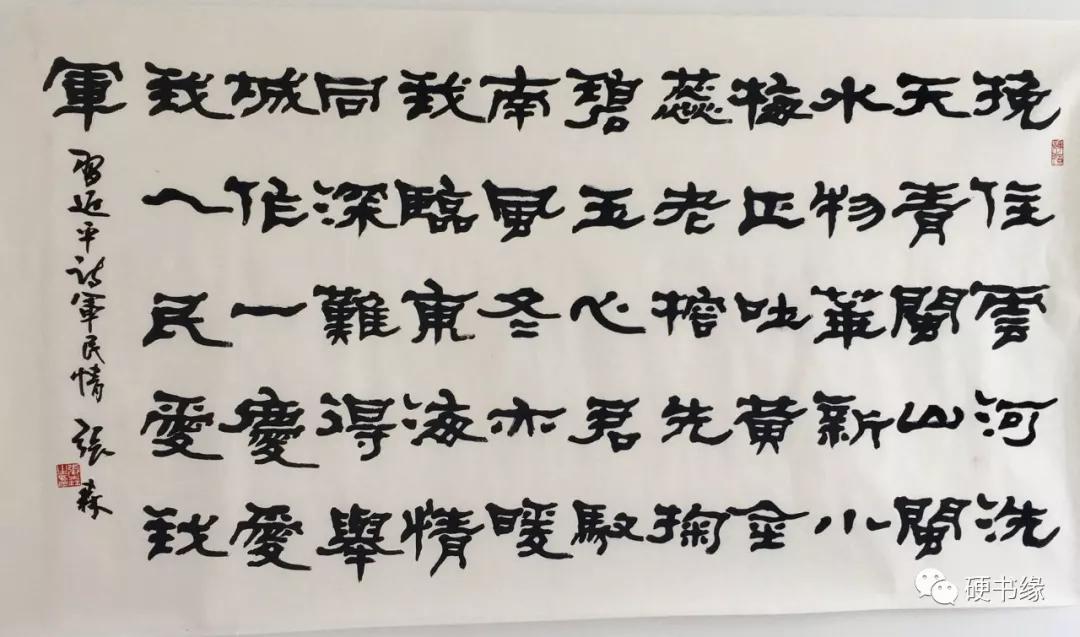 挽住雲河洗
天青閩山閩
水物華新小
梅正吐黃金
蕊老榕先掬
碧玉心君馭
南風冬亦暖
我臨東海情
同深難得舉
城作一慶愛
我人民愛我
軍
習近平詩軍民情 張森
硬书缘